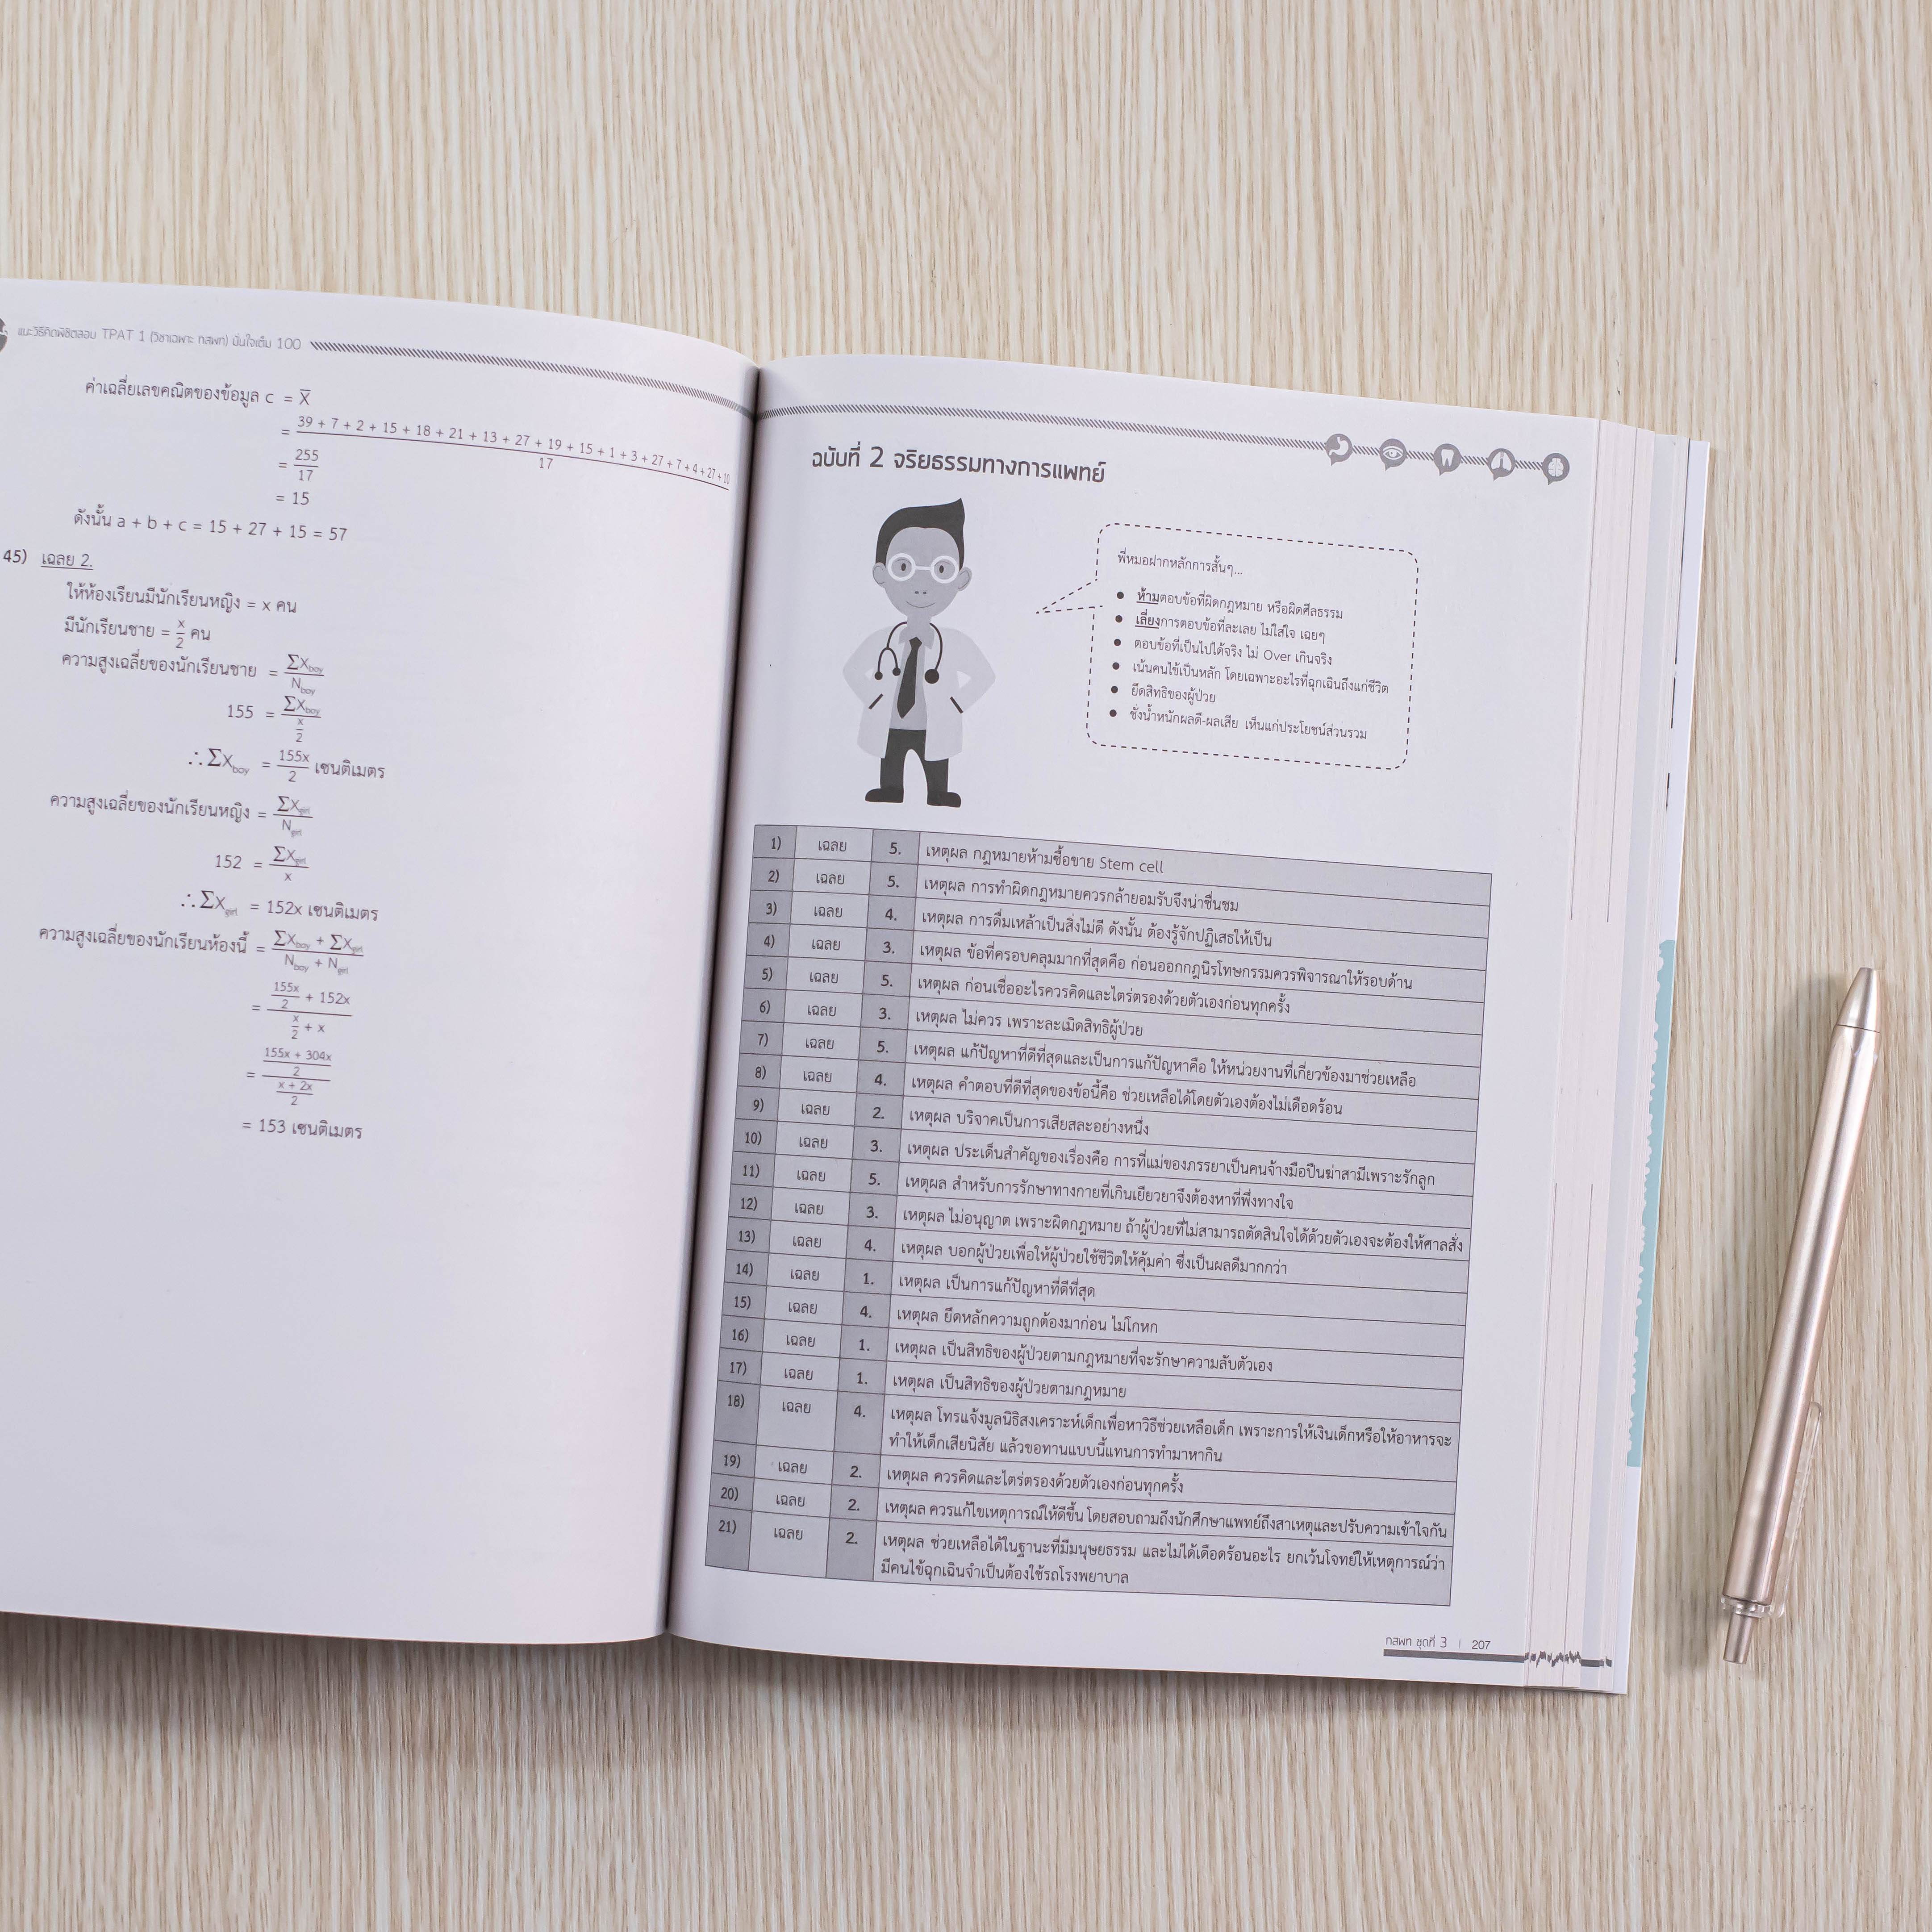 แนะวิธีคิดพิชิตสอบ TPAT 1 (วิชาเฉพาะ กสพท) มั่นใจเต็ม 100
ค่าเฉลี่ยเลขคณิตของข้อมูล c = X̄
= 39 + 7 + 2 + 15 + 18 + 21 + 13 + 27 + 19 + 15 + 1 + 3 + 27 + 7 + 4 + 27 + 10
17
= 255
17
= 15
ดังนั้น a + b + c = 15 + 27 + 15 = 57
45) เฉลย 2.
ให้ห้องเรียนมีนักเรียนหญิง = x คน
มีนักเรียนชาย = x/2 คน
ความสูงเฉลี่ยของนักเรียนชาย = ΣXboy/Nboy
155 = ΣXboy/(x/2)
∴ ΣXboy = 155x/2 เซนติเมตร
ความสูงเฉลี่ยของนักเรียนหญิง = ΣXgirl/Ngirl
152 = ΣXgirl/x
∴ ΣXgirl = 152x เซนติเมตร
ความสูงเฉลี่ยของนักเรียนห้องนี้ = (ΣXboy + ΣXgirl)/(Nboy + Ngirl)
= (155x/2 + 152x)/(x/2 + x)
= ((155x + 304x)/2)/((x + 2x)/2)
= 153 เซนติเมตร
ฉบับที่ 2 จริยธรรมทางการแพทย์
พี่หมอฝากหลักการสั้นๆ...
● ห้ามตอบข้อที่ผิดกฎหมาย หรือผิดศีลธรรม
● เลี่ยงการตอบข้อที่ละเลย ไม่ใส่ใจ เฉยๆ
● ตอบข้อที่เป็นไปได้จริง ไม่ Over เกินจริง
● เน้นคนไข้เป็นหลัก โดยเฉพาะอะไรที่ฉุกเฉินถึงแก่ชีวิต
● ยึดสิทธิของผู้ป่วย
● ชั่งน้ำหนักผลดี-ผลเสีย เห็นแก่ประโยชน์ส่วนรวม
1) เฉลย 5. เหตุผล กฎหมายห้ามซื้อขาย Stem cell
2) เฉลย 5. เหตุผล การทำผิดกฎหมายควรกล้ายอมรับจึงน่าชื่นชม
3) เฉลย 4. เหตุผล การดื่มเหล้าเป็นสิ่งไม่ดี ดังนั้น ต้องรู้จักปฏิเสธให้เป็น
4) เฉลย 3. เหตุผล ข้อที่ครอบคลุมมากที่สุดคือ ก่อนออกกฎนิรโทษกรรมควรพิจารณาให้รอบด้าน
5) เฉลย 5. เหตุผล ก่อนเชื่ออะไรควรคิดและไตร่ตรองด้วยตัวเองก่อนทุกครั้ง
6) เฉลย 3. เหตุผล ไม่ควร เพราะละเมิดสิทธิผู้ป่วย
7) เฉลย 5. เหตุผล แก้ปัญหาที่ดีที่สุดและเป็นการแก้ปัญหาคือ ให้หน่วยงานที่เกี่ยวข้องมาช่วยเหลือ
8) เฉลย 4. เหตุผล คำตอบที่ดีที่สุดของข้อนี้คือ ช่วยเหลือได้โดยตัวเองต้องไม่เดือดร้อน
9) เฉลย 2. เหตุผล บริจาคเป็นการเสียสละอย่างหนึ่ง
10) เฉลย 3. เหตุผล ประเด็นสำคัญของเรื่องคือ การที่แม่ของภรรยาเป็นคนจ้างมือปืนฆ่าสามีเพราะรักลูก
11) เฉลย 5. เหตุผล สำหรับการรักษาทางกายที่เกินเยียวยาจึงต้องหาที่พึ่งทางใจ
12) เฉลย 3. เหตุผล ไม่อนุญาต เพราะผิดกฎหมาย ถ้าผู้ป่วยที่ไม่สามารถตัดสินใจได้ด้วยตัวเองจะต้องให้ศาลสั่ง
13) เฉลย 4. เหตุผล บอกผู้ป่วยเพื่อให้ผู้ป่วยใช้ชีวิตให้คุ้มค่า ซึ่งเป็นผลดีมากกว่า
14) เฉลย 1. เหตุผล เป็นการแก้ปัญหาที่ดีที่สุด
15) เฉลย 4. เหตุผล ยึดหลักความถูกต้องมาก่อน ไม่โกหก
16) เฉลย 1. เหตุผล เป็นสิทธิของผู้ป่วยตามกฎหมายที่จะรักษาความลับตัวเอง
17) เฉลย 1. เหตุผล เป็นสิทธิของผู้ป่วยตามกฎหมาย
18) เฉลย 4. เหตุผล โทรแจ้งมูลนิธิสงเคราะห์เด็กเพื่อหาวิธีช่วยเหลือเด็ก เพราะการให้เงินเด็กหรือให้อาหารจะ
ทำให้เด็กเสียนิสัย แล้วขอทานแบบนี้แทนการทำมาหากิน
19) เฉลย 2. เหตุผล ควรคิดและไตร่ตรองด้วยตัวเองก่อนทุกครั้ง
20) เฉลย 2. เหตุผล ควรแก้ไขเหตุการณ์ให้ดีขึ้น โดยสอบถามถึงนักศึกษาแพทย์ถึงสาเหตุและปรับความเข้าใจกัน
21) เฉลย 2. เหตุผล ช่วยเหลือได้ในฐานะที่มีมนุษยธรรม และไม่ได้เดือดร้อนอะไร ยกเว้นโจทย์ให้เหตุการณ์ว่า
มีคนไข้ฉุกเฉินจำเป็นต้องใช้รถโรงพยาบาล
กสพท ชุดที่ 3 | 207